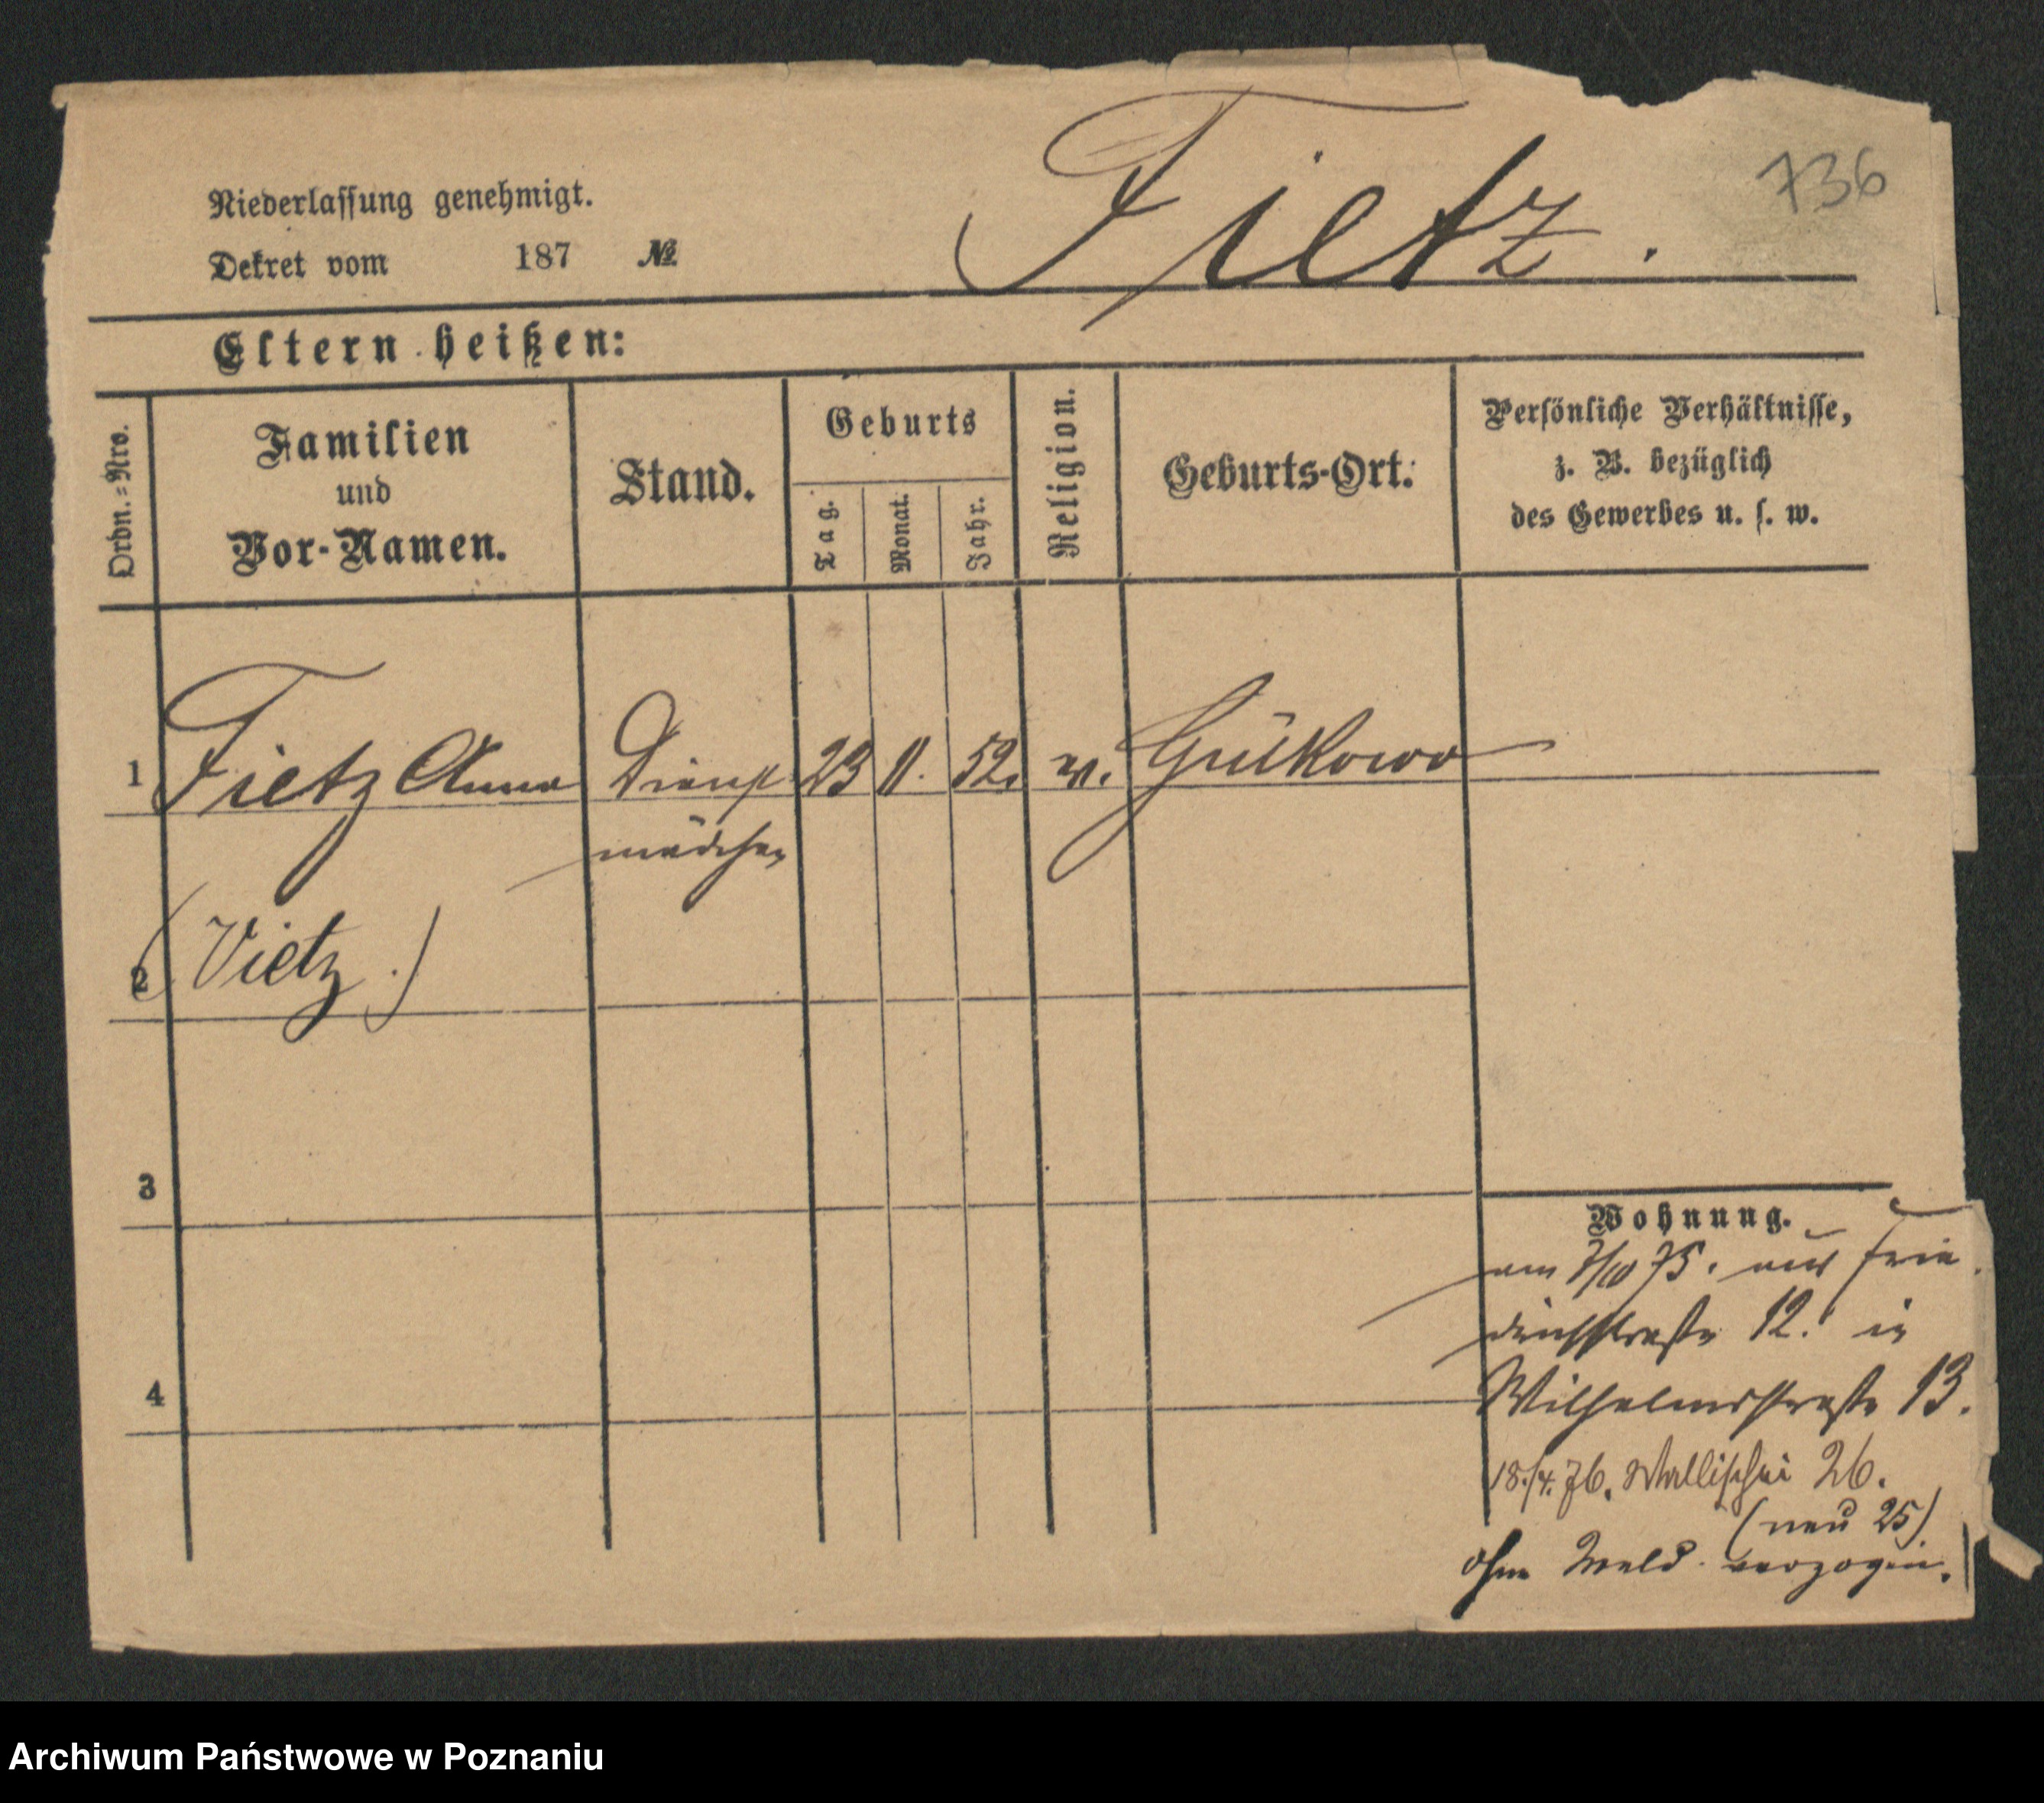 736
Fietz.
Niederlassung genehmigt.
Dekret vom 187 №
Eltern heißen:
Ordn.=Nro.
Familien
und
Vor-Namen.
Stand.
Geburts
Tag.
Monat.
Jahr.
Religion.
Geburts-Ort.
Persönliche Verhältnisse,
z. B. bezüglich
des Gewerbes u. s. w.
1 Fietz Anna Dienst 23 11. 52. Gułkowo
mädchen
2 (Vietz.)
3
4
Wohnung.
am 75. aus Frie
drichstraße 12. in
Wilhelmsstraße 13.
18./4. 76. Wallischei 26.
(neu 25)
ohne Meld. verzogen.
Archiwum Państwowe w Poznaniu